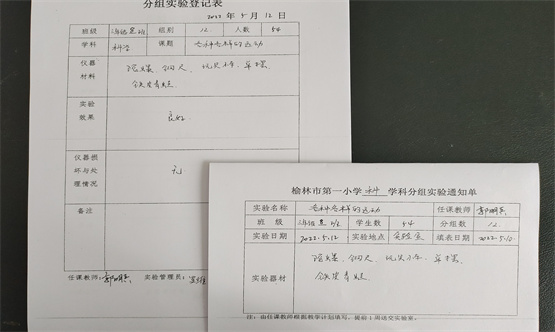 分组实验登记表
2022 年 5 月 12 日
班级 组别 12 人数 54
学科 科学 课题 各种各样的运动
仪器
材料
钢尺、玩具小车、单摆、
实验
效果
良好
仪器损
坏与处
理情况
无
备注
任课教师: 实验管理员:
榆林市第一小学 科 学科分组实验通知单
实验名称 各种各样的运动 任课教师
班 级 学生数 54 分组数 12
实验日期 2022.5.12 实验地点 实验室 填表日期 2022.5.10
实验器材
钢尺、玩具小车、单摆、
注:由任课教师根据教学计划填写,提前1周送交实验室。